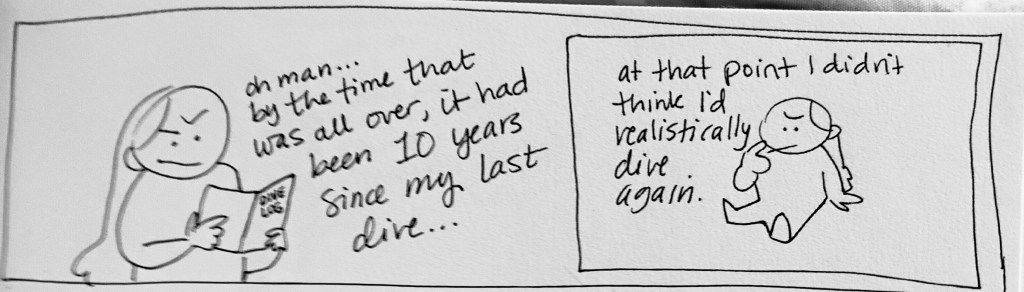 oh man...
by the time that
was all over, it had
been 10 years
since my last
dive...
DIVE
LOG
at that point I didn't
think I'd
realistically
dive
again.